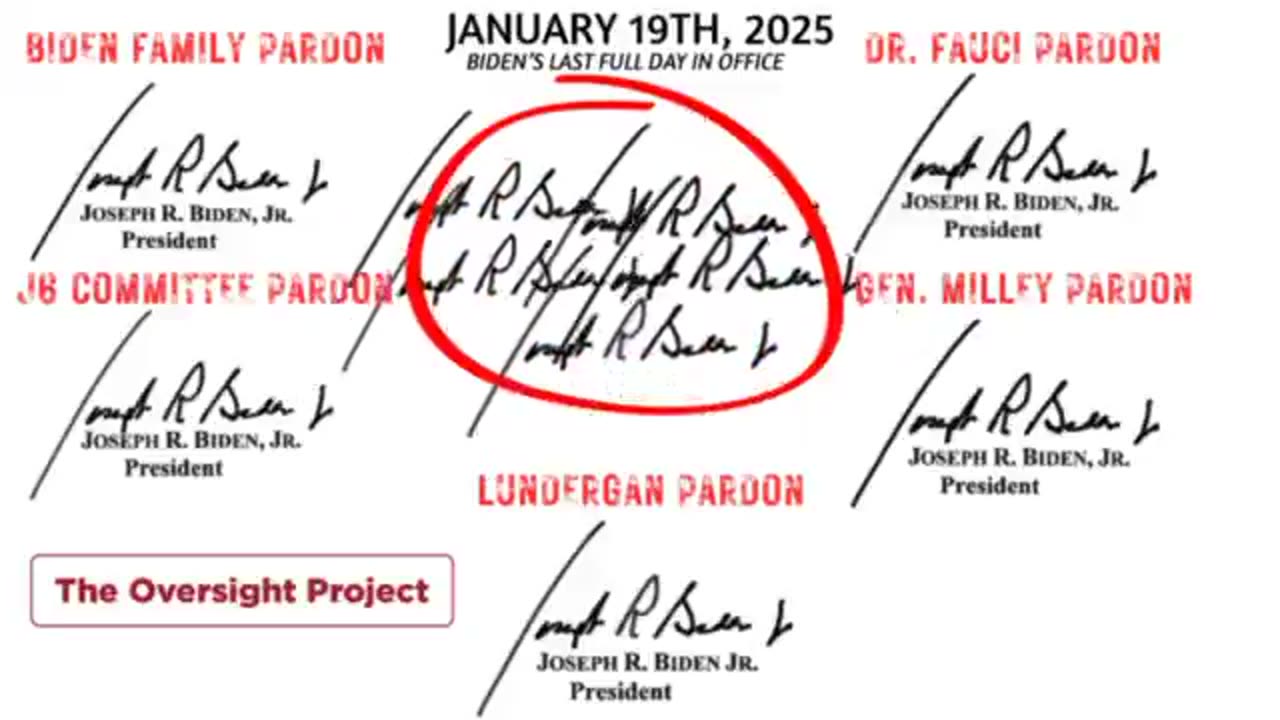 JANUARY 19TH, 2025
BIDEN'S LAST FULL DAY IN OFFICE
BIDEN FAMILY PARDON
Joseph R Biden Jr
JOSEPH R. BIDEN, JR.
President
DR. FAUCI PARDON
Joseph R Biden Jr
JOSEPH R. BIDEN, JR.
President
Joseph R Biden
Joseph R Biden Jr
Joseph R Biden
Joseph R Biden Jr
Joseph R Biden Jr
J6 COMMITTEE PARDON
Joseph R Biden Jr
JOSEPH R. BIDEN, JR.
President
GEN. MILLEY PARDON
Joseph R Biden Jr
JOSEPH R. BIDEN, JR.
President
LUNDERGAN PARDON
Joseph R Biden Jr
JOSEPH R. BIDEN JR.
President
The Oversight Project